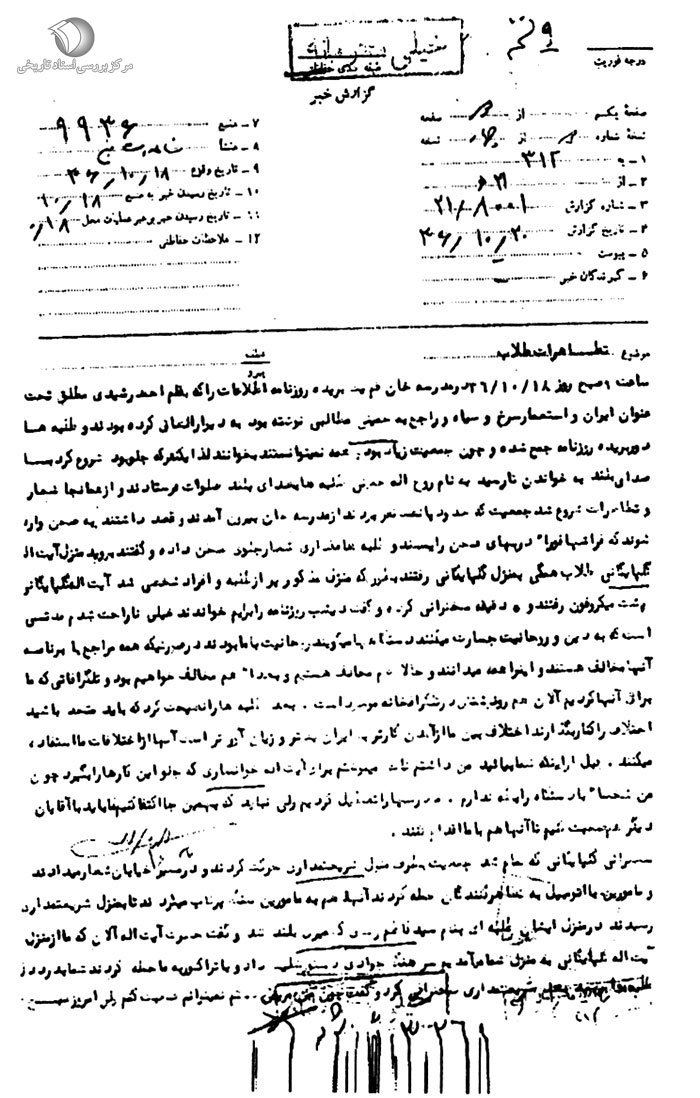 مرکز بررسی اسناد تاریخی
درجه فوریت
گزارش خبر
صفحهٔ یکم از صفحه
نسخهٔ شماره از نسخه
۱ - به ۳۱۲
۲ - از ۲۱
۳ - شماره گزارش
۴ - تاریخ گزارش ۳۶/۱۰/۲۰
۵ - پیوست
۶ - گیرندگان خبر
۷ - منبع ۹۹۳۶
۸ - منشأ
۹ - تاریخ وقوع ۳۶/۱۰/۱۸
۱۰ - تاریخ رسیدن خبر به منبع ۱۰/۱۸
۱۱ - تاریخ رسیدن خبر به رهبر عملیات محل
۱۲ - ملاحظات حفاظتی
موضوع تظاهرات طلاب
ساعت ۹ صبح روز ۳۶/۱۰/۱۸ در مدرسه خان قم بریده روزنامه اطلاعات را که بقلم احمد رشیدی مطلق تحت
عنوان ایران و استعمار سرخ و سیاه و راجع به خمینی مطالبی نوشته بود به دیوار الصاق کرده بودند و طلبه ها
دور بریده روزنامه جمع شده و چون جمعیت زیاد بود همه نمیتوانستند بخوانند لذا یکنفر که جلو بود شروع کرد با
صدای بلند به خواندن تا رسید به نام روح اله خمینی طلبه ها بصدای بلند صلوات فرستادند و از همانجا شعار
و تظاهرات شروع شد جمعیت که حدود پانصد نفر بودند از مدرسه خان بیرون آمدند و قصد داشتند به صحن وارد
شوند که فراشها فورا" دربهای صحن را بستند و طلبه ها مقداری شعار جلوی صحن داده و گفتند بروید منزل آیت اله
گلپایگانی طلاب همگی بمنزل گلپایگانی رفتند بطوریکه منزل مذکور پر از طلبه و افراد شخصی شد آیت اله گلپایگانی
پشت میکروفون رفتند و دقیقه سخنرانی کرده و گفت دیشب روزنامه را برایم خواندند خیلی ناراحت شدم مدتی
است که به دین و روحانیت جسارت میکنند دستگاه بما میگویند روحانیت با ما بودند در صورتیکه همه مراجع با برنامه
آنها مخالف هستند و اینرا همه میدانند و حالا هم مخالف هستیم و بعدا" هم مخالف خواهیم بود و تلگرافاتی که ما
برای آنها کردیم الان هم رونوشتش در تلگرافخانه موجود است . بعد طلبه ها را نصیحت کرد که باید متحد باشید
اختلاف را کنار بگذارند اختلاف بین ما از آمدن کارتر به ایران بدتر و زیان آورتر است آنها از اختلافات ما استفاده
میکنند . قبل از اینکه شما بیائید من داشتم نامه مینوشتم برای آیت اله خوانساری که جلو این کارها را بگیرد چون
من شخصا" با دستگاه رابطه ندارم . درسها را تعطیل کردیم ولی نباید که بهمین جا اکتفا کنیم باید با آقایان
دیگر هم صحبت کنیم تا آنها هم با ما اقدام کنند .
سخنرانی گلپایگانی که تمام شد جمعیت بطرف منزل شریعتمداری حرکت کردند و در مسیر خیابان شعار میدادند
و مامورین با اتومبیل به تظاهرکنندگان حمله کردند آنها هم به مامورین سنگ پرتاب میکردند تا بمنزل شریعتمداری
رسیدند در منزل ایشان طلبه ای بنام سید بلند شد و گفت حضرت آیت اله الان که ما از منزل
آیت اله گلپایگانی به منزل شما میآمدیم سرهنگ جوادی دستور داد و با تراکتور به ما حمله کردند
شریعتمداری سخنرانی کرد و گفت نمیتوانم صحبت کنم ولی امروز